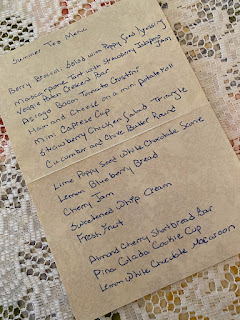 Summer Tea Menu
Berry Broccoli Salad with Poppy Seed Dressing
Mascarpone Tart with Strawberry Jalapeno Jam
Veggie Patch Crescent Bar
Asiago Bacon Tomato Crostini
Ham and Cheese on a mini Potato Roll
Mini Caprese Cup
Strawberry Chicken Salad Triangle
Cucumber and Chive Butter Round
Lime Poppy Seed White Chocolate Scone
Lemon Blueberry Bread
Cherry Jam
Sweetened Whip Cream
Fresh Fruit
Almond Cherry Shortbread Bar
Pina Colada Cookie Cup
Lemon White Chocolate Macaroon